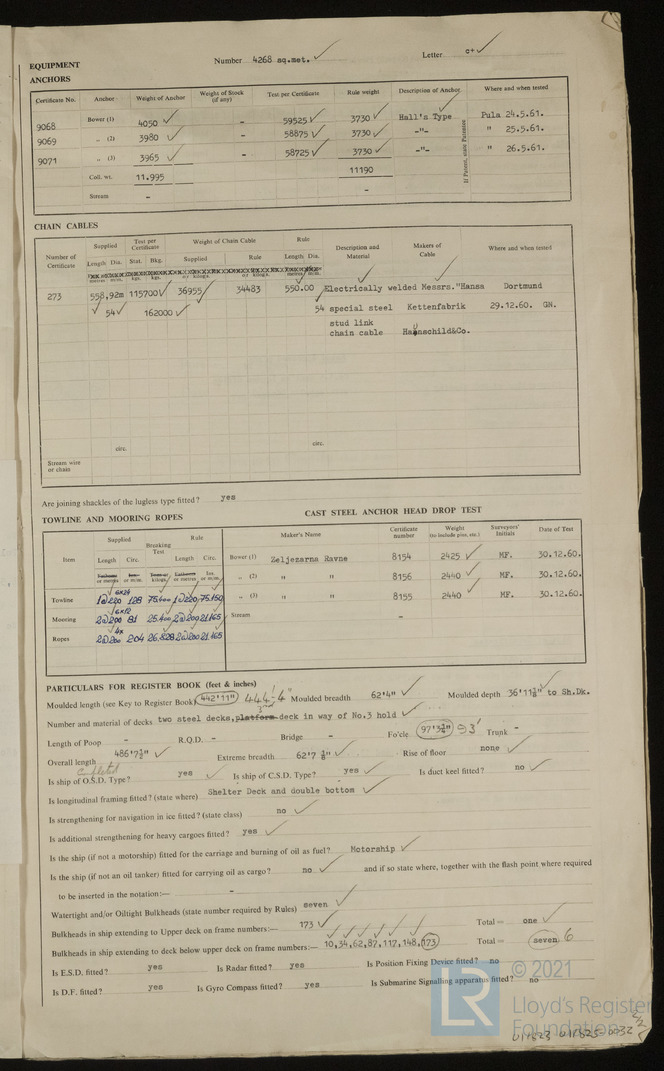 EQUIPMENT Number 4268 sq.met. Letter c+
ANCHORS
Certificate No. Anchor Weight of Anchor Weight of Stock (if any) Test per Certificate Rule weight Description of Anchor Where and when tested
9068 Bower (1) 4050 - 59525 3730 Hall's Type Pula 24.5.61.
9069 „ (2) 3980 - 58875 3730 -"- " 25.5.61.
9071 „ (3) 3965 - 58725 3730 -"- " 26.5.61.
Coll. wt. 11.995 11190
Stream - -
If Patent, state Patentee
CHAIN CABLES
Number of Certificate Supplied Test per Certificate Weight of Chain Cable Rule Description and Material Makers of Cable Where and when tested
Length Dia. Stat. Bkg. Supplied Rule Length Dia.
metres mm. kgs. kgs. or kilogs. or kilogs. metres mm.
273 558,92m 115700 36955 34483 550.00 Electrically welded Messrs."Hansa Dortmund
54 162000 54 special steel Kettenfabrik 29.12.60. GN.
stud link
chain cable Haunschild&Co.
circ. circ.
Stream wire
or chain
Are joining shackles of the lugless type fitted? yes
TOWLINE AND MOORING ROPES
Item Supplied Breaking Test Rule
Length Circ. Length Circ.
Fathoms or metres Ins. or m/m. Tons or kilogs. Fathoms or metres Ins. or m/m.
6x24
Towline 1@220 128 75.400 1@220 75.150
6x12
Mooring 2@200 81 25.400 2@200 21.165
4x
Ropes 2@200 204 26.828 2@200 21.165
CAST STEEL ANCHOR HEAD DROP TEST
Maker's Name Certificate number Weight (to include pins, etc.) Surveyors' Initials Date of Test
Bower (1) Zeljezarna Ravne 8154 2425 MF. 30.12.60.
„ (2) " " 8156 2440 MF. 30.12.60.
„ (3) " " 8155 2440 MF. 30.12.60.
Stream -
PARTICULARS FOR REGISTER BOOK (feet & inches)
Moulded length (see Key to Register Book) 442'11" 444'-4" Moulded breadth 62'4" Moulded depth 36'11⅜" to Sh.Dk.
Number and material of decks two steel decks, platform 3rd deck in way of No.3 hold
Length of Poop - R.Q.D. - Bridge - Fo'cle 97'3¾" 93' Trunk -
Overall length 486'7½" Extreme breadth 62'7 ⅛" Rise of floor none
Is ship of O.S.D. Type? yes Is ship of C.S.D. Type? yes Is duct keel fitted? no
Is longitudinal framing fitted? (state where) Shelter Deck and double bottom
Is strengthening for navigation in ice fitted? (state class) no
Is additional strengthening for heavy cargoes fitted? yes
Is the ship (if not a motorship) fitted for the carriage and burning of oil as fuel? Motorship
Is the ship (if not an oil tanker) fitted for carrying oil as cargo? no and if so state where, together with the flash point where required
to be inserted in the notation:— -
Watertight and/or Oiltight Bulkheads (state number required by Rules) seven
Bulkheads in ship extending to Upper deck on frame numbers:— 173 Total = one
Bulkheads in ship extending to deck below upper deck on frame numbers:— 10,34,62,87,117,148,173 Total = seven 6
Is E.S.D. fitted? yes Is Radar fitted? yes Is Position Fixing Device fitted? no
Is D.F. fitted? yes Is Gyro Compass fitted? yes Is Submarine Signalling apparatus fitted? no
LR © 2021
Lloyd's Register
Foundation